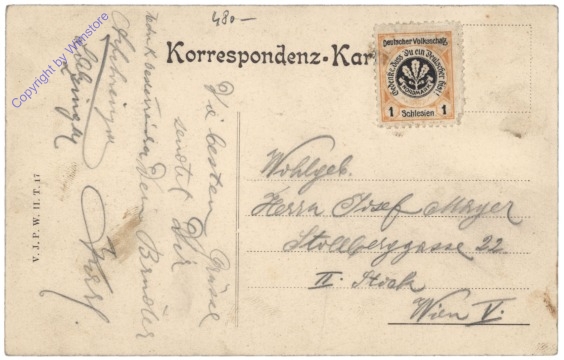 480-
Korrespondenz-Kar
Deutscher Volksschatz
Gedenke, dass Du ein Deutscher bist!
NORDMARK
1 Schlesien 1
Copyright by Wienstore
Die besten Grüsse
sendet Dir
Dein Bruder
Karl.
Wohlgeb.
Herrn Josef Mayer
Stollberggasse 22
II. Stock
Wien V.
V. J. P. W. II. T. 17